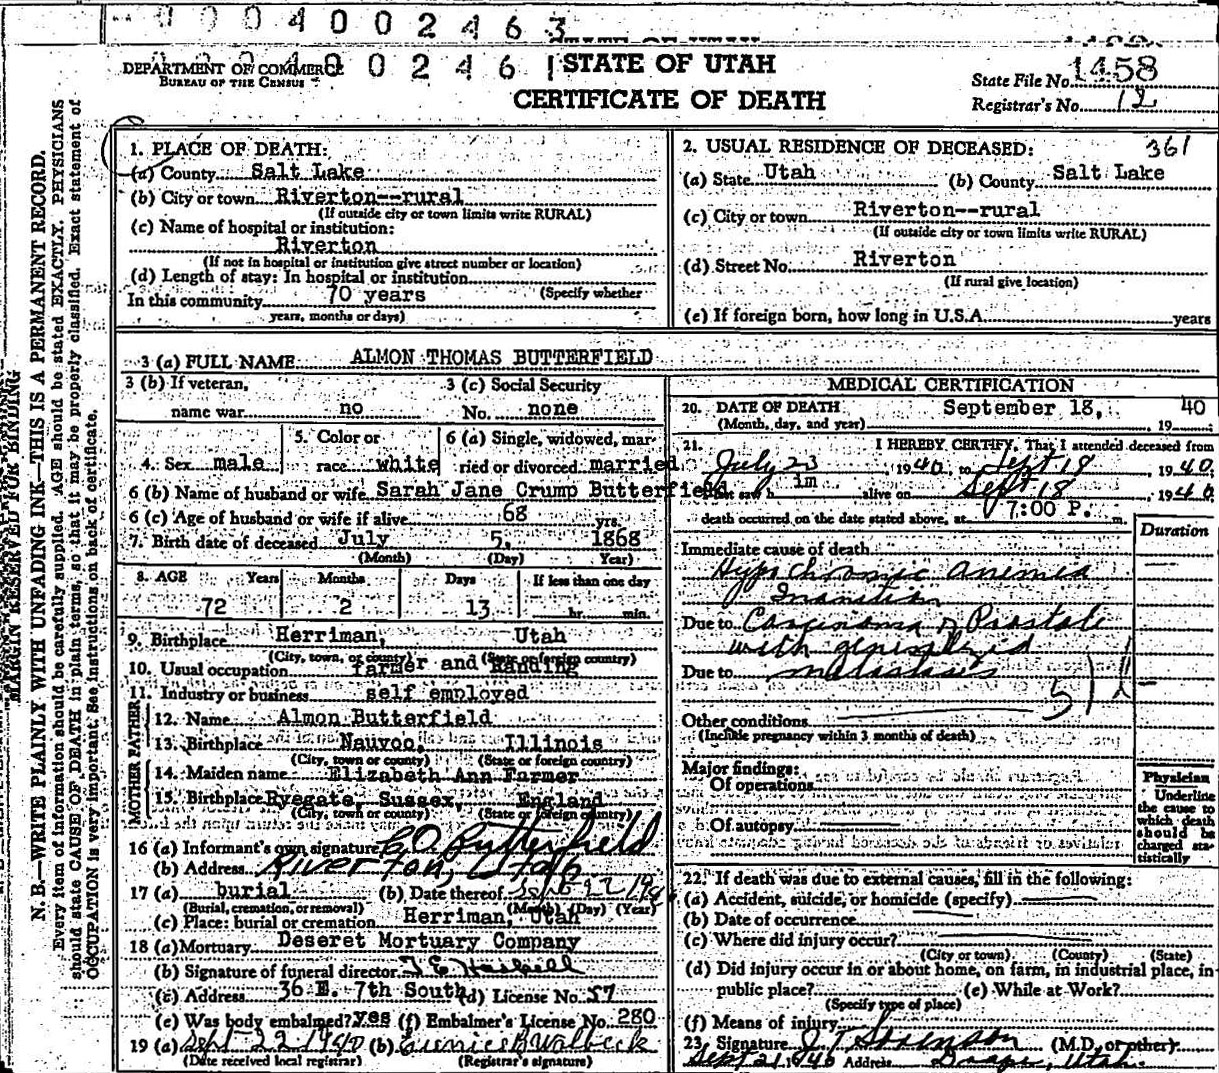 0004002463
STATE OF UTAH
0004002461
DEPARTMENT OF COMMERCE
BUREAU OF THE CENSUS
STATE OF UTAH
CERTIFICATE OF DEATH
State File No. 1458
Registrar's No. 12
MARGIN RESERVED FOR BINDING
N. B.—WRITE PLAINLY WITH UNFADING INK—THIS IS A PERMANENT RECORD.
Every item of information should be carefully supplied. AGE should be stated EXACTLY. PHYSICIANS
should state CAUSE OF DEATH in plain terms, so that it may be properly classified. Exact statement of
OCCUPATION is very important. See instructions on back of certificate.
1. PLACE OF DEATH:
(a) County Salt Lake
(b) City or town Riverton--rural
(If outside city or town limits write RURAL)
(c) Name of hospital or institution:
Riverton
(If not in hospital or institution give street number or location)
(d) Length of stay: In hospital or institution
(Specify whether
In this community 70 years
years, months or days)
2. USUAL RESIDENCE OF DECEASED: 361
(a) State Utah (b) County Salt Lake
(c) City or town Riverton--rural
(If outside city or town limits write RURAL)
(d) Street No. Riverton
(If rural give location)
(e) If foreign born, how long in U.S.A. years
3 (a) FULL NAME ALMON THOMAS BUTTERFIELD
3 (b) If veteran, 3 (c) Social Security
name war no No. none
4. Sex male 5. Color or race white 6 (a) Single, widowed, married or divorced married
6 (b) Name of husband or wife Sarah Jane Crump Butterfield
6 (c) Age of husband or wife if alive 68 yrs.
7. Birth date of deceased July 5, 1868
(Month) (Day) Year)
8. AGE Years Months Days If less than one day
72 2 13 hr. min.
9. Birthplace Herriman, Utah
(City, town, or county) (State or foreign country)
10. Usual occupation Farmer and Ranching
11. Industry or business self employed
FATHER
12. Name Almon Butterfield
13. Birthplace Nauvoo, Illinois
(City, town or county) (State or foreign country)
MOTHER
14. Maiden name Elizabeth Ann Farmer
15. Birthplace Ryegate, Sussex, England
(City, town or county) (State or foreign country)
16 (a) Informant's own signature C.O. Butterfield
(b) Address Riverton, Utah
17 (a) burial (b) Date thereof Sept 22 1940
(Burial, cremation, or removal) (Month) (Day) (Year)
(c) Place: burial or cremation Herriman, Utah
18 (a) Mortuary Deseret Mortuary Company
(b) Signature of funeral director
(c) Address 36 E. 7th South (d) License No. 57
(e) Was body embalmed? yes (f) Embalmer's License No. 280
19 (a) Sept-22 1940 (b)
(Date received local registrar) (Registrar's signature)
MEDICAL CERTIFICATION
20. DATE OF DEATH September 18, 1940
(Month, day, and year)
21. I HEREBY CERTIFY, That I attended deceased from
July 23, 1940, to Sept 18 1940,
last saw him alive on Sept 18, 1940
death occurred on the date stated above, at 7:00 P. m.
Duration
Immediate cause of death
Hypochromic anemia
Inanition
Due to Carcinoma of Prostate
with generalized
Due to metastasis
51
Other conditions
(Include pregnancy within 3 months of death)
Major findings:
Of operations
Of autopsy
Physician
Underline the cause to which death should be charged statistically
22. If death was due to external causes, fill in the following:
(a) Accident, suicide, or homicide (specify)
(b) Date of occurrence
(c) Where did injury occur?
(City or town) (County) (State)
(d) Did injury occur in or about home, on farm, in industrial place, in
public place? (e) While at Work?
(Specify type of place)
(f) Means of injury
23. Signature J. T. Sorenson (M.D. or other)
Sept 21, 1940 Address Draper, Utah